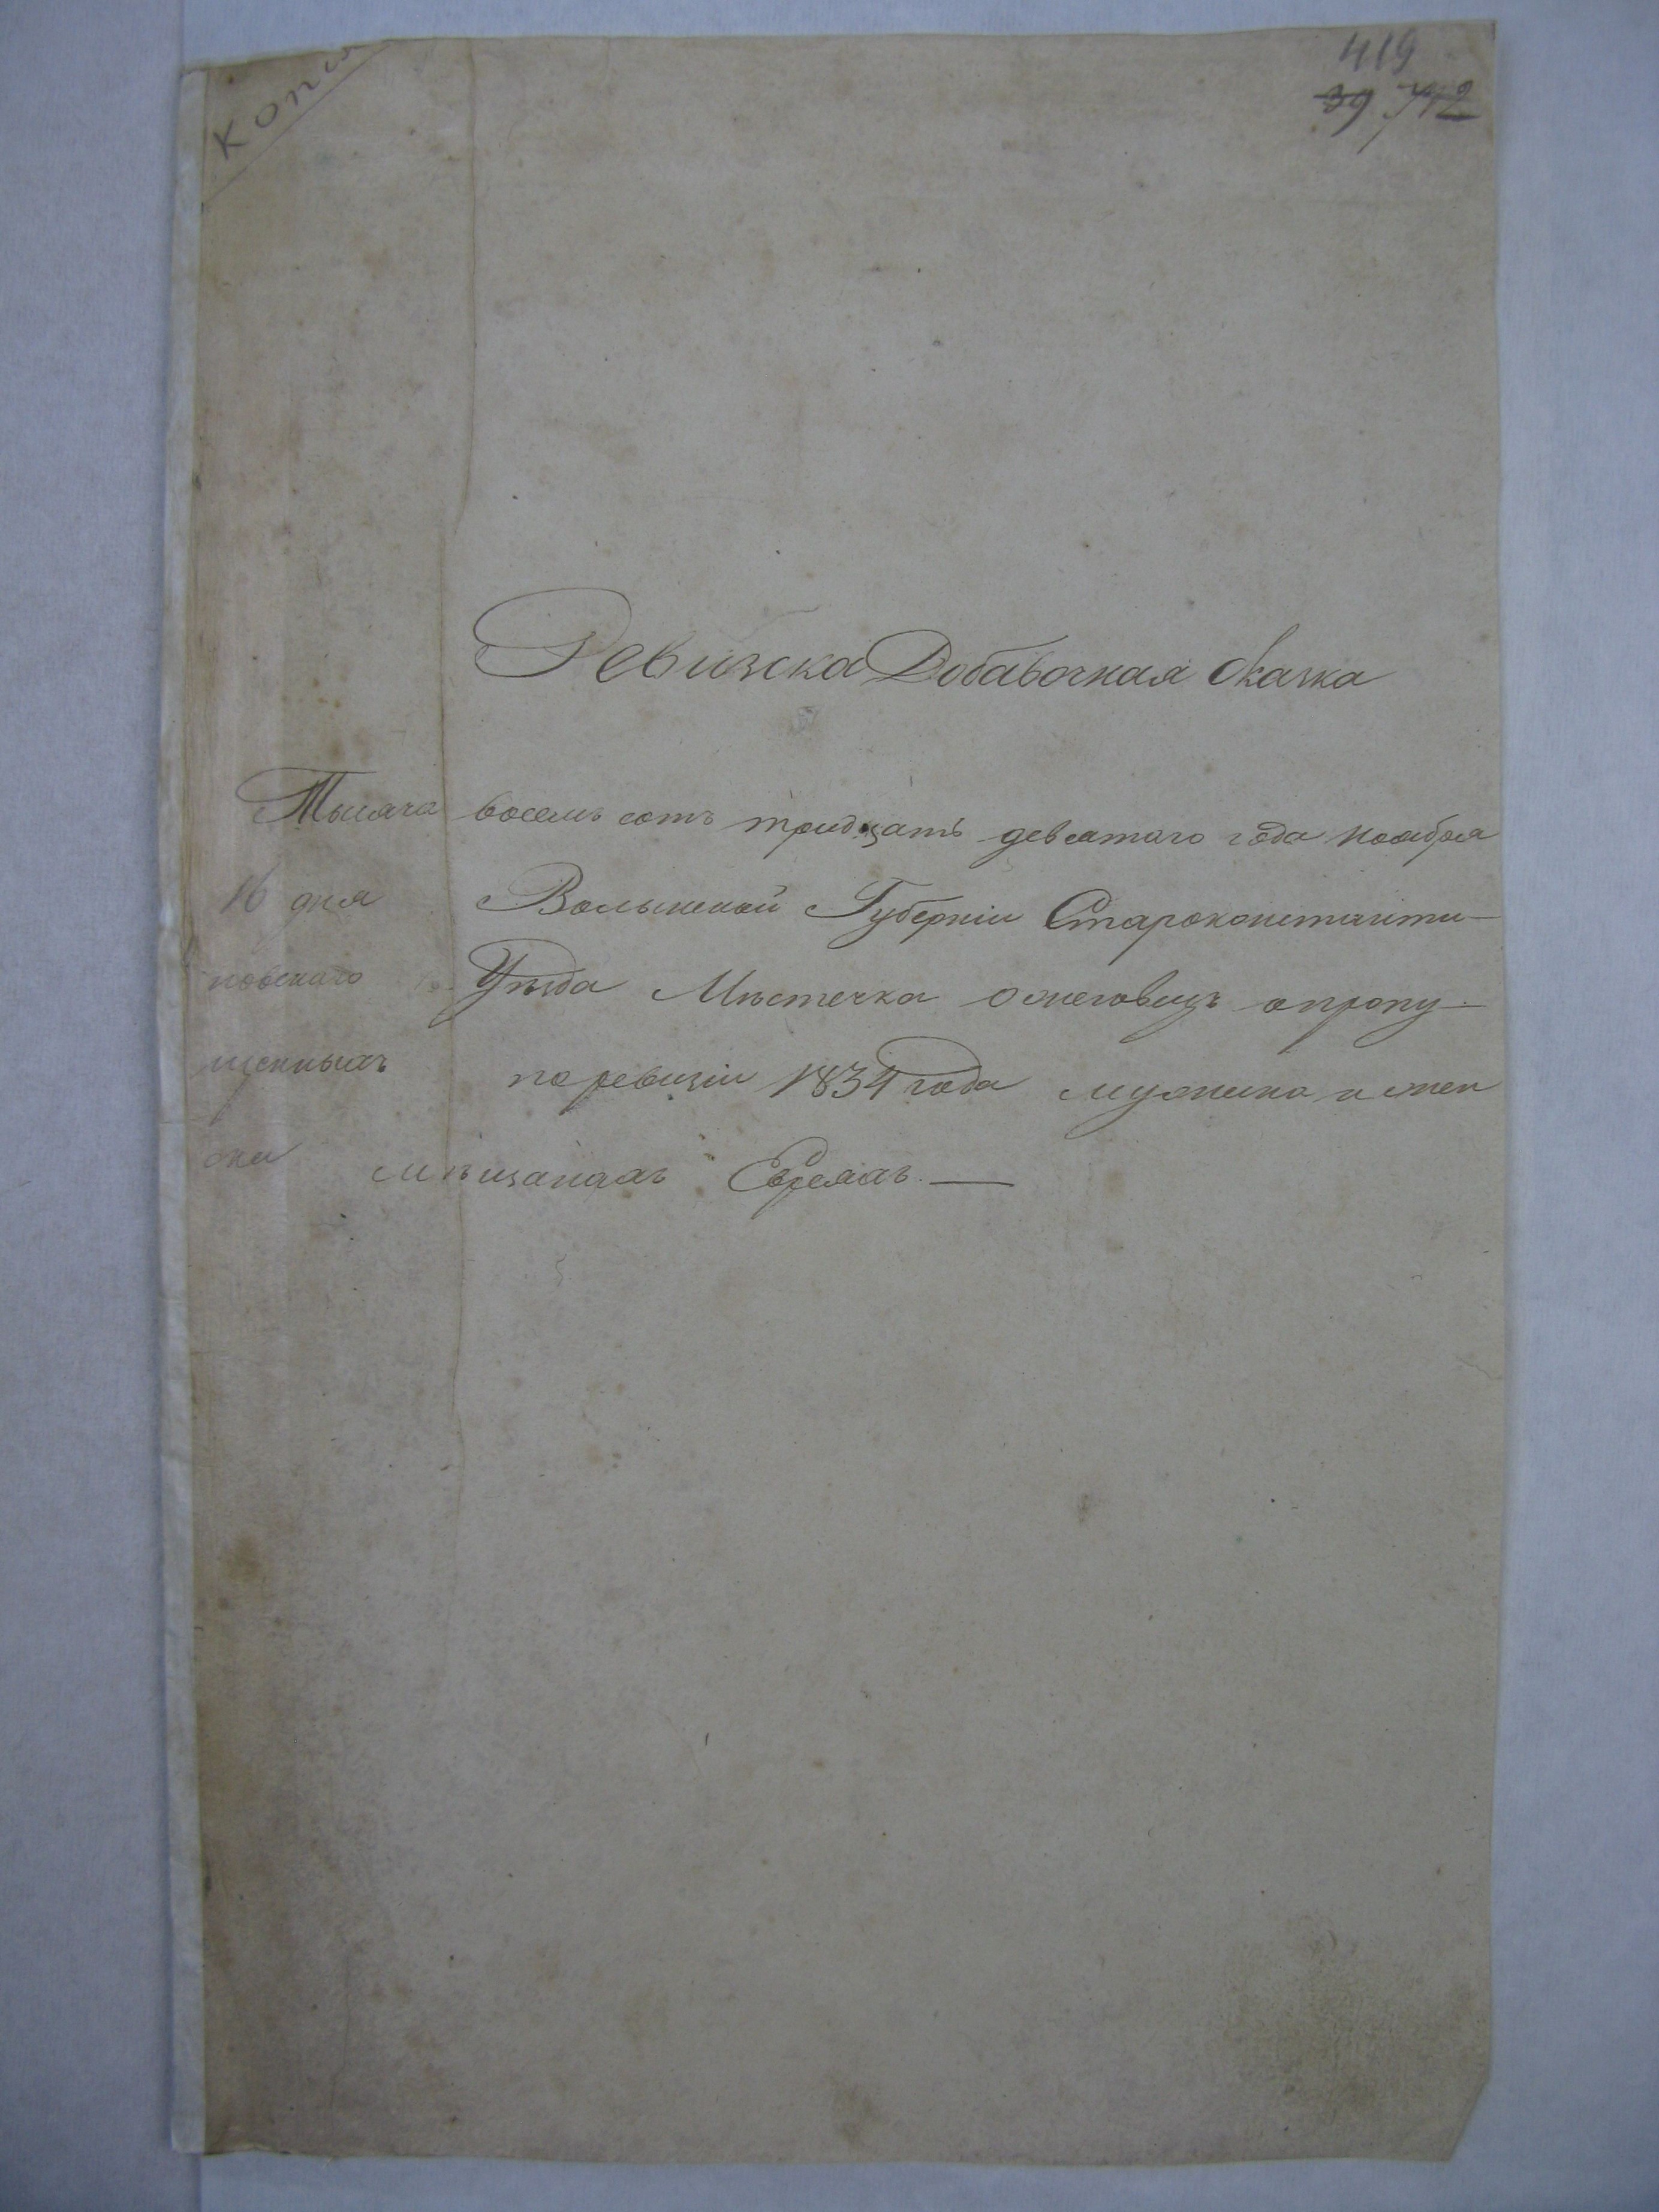 Копия
419
39 742
Ревизска Добавочная сказка
Тысяча восемь сотъ тридцать девятаго года ноября
16 дня Волынской Губерніи Староконстанти-
новскаго Уѣзда Мѣстечка Ожеговецъ опропу-
щенныхъ поревизіи 1834 года мужеска и жен
ска мѣщанахъ Евреяхъ. —